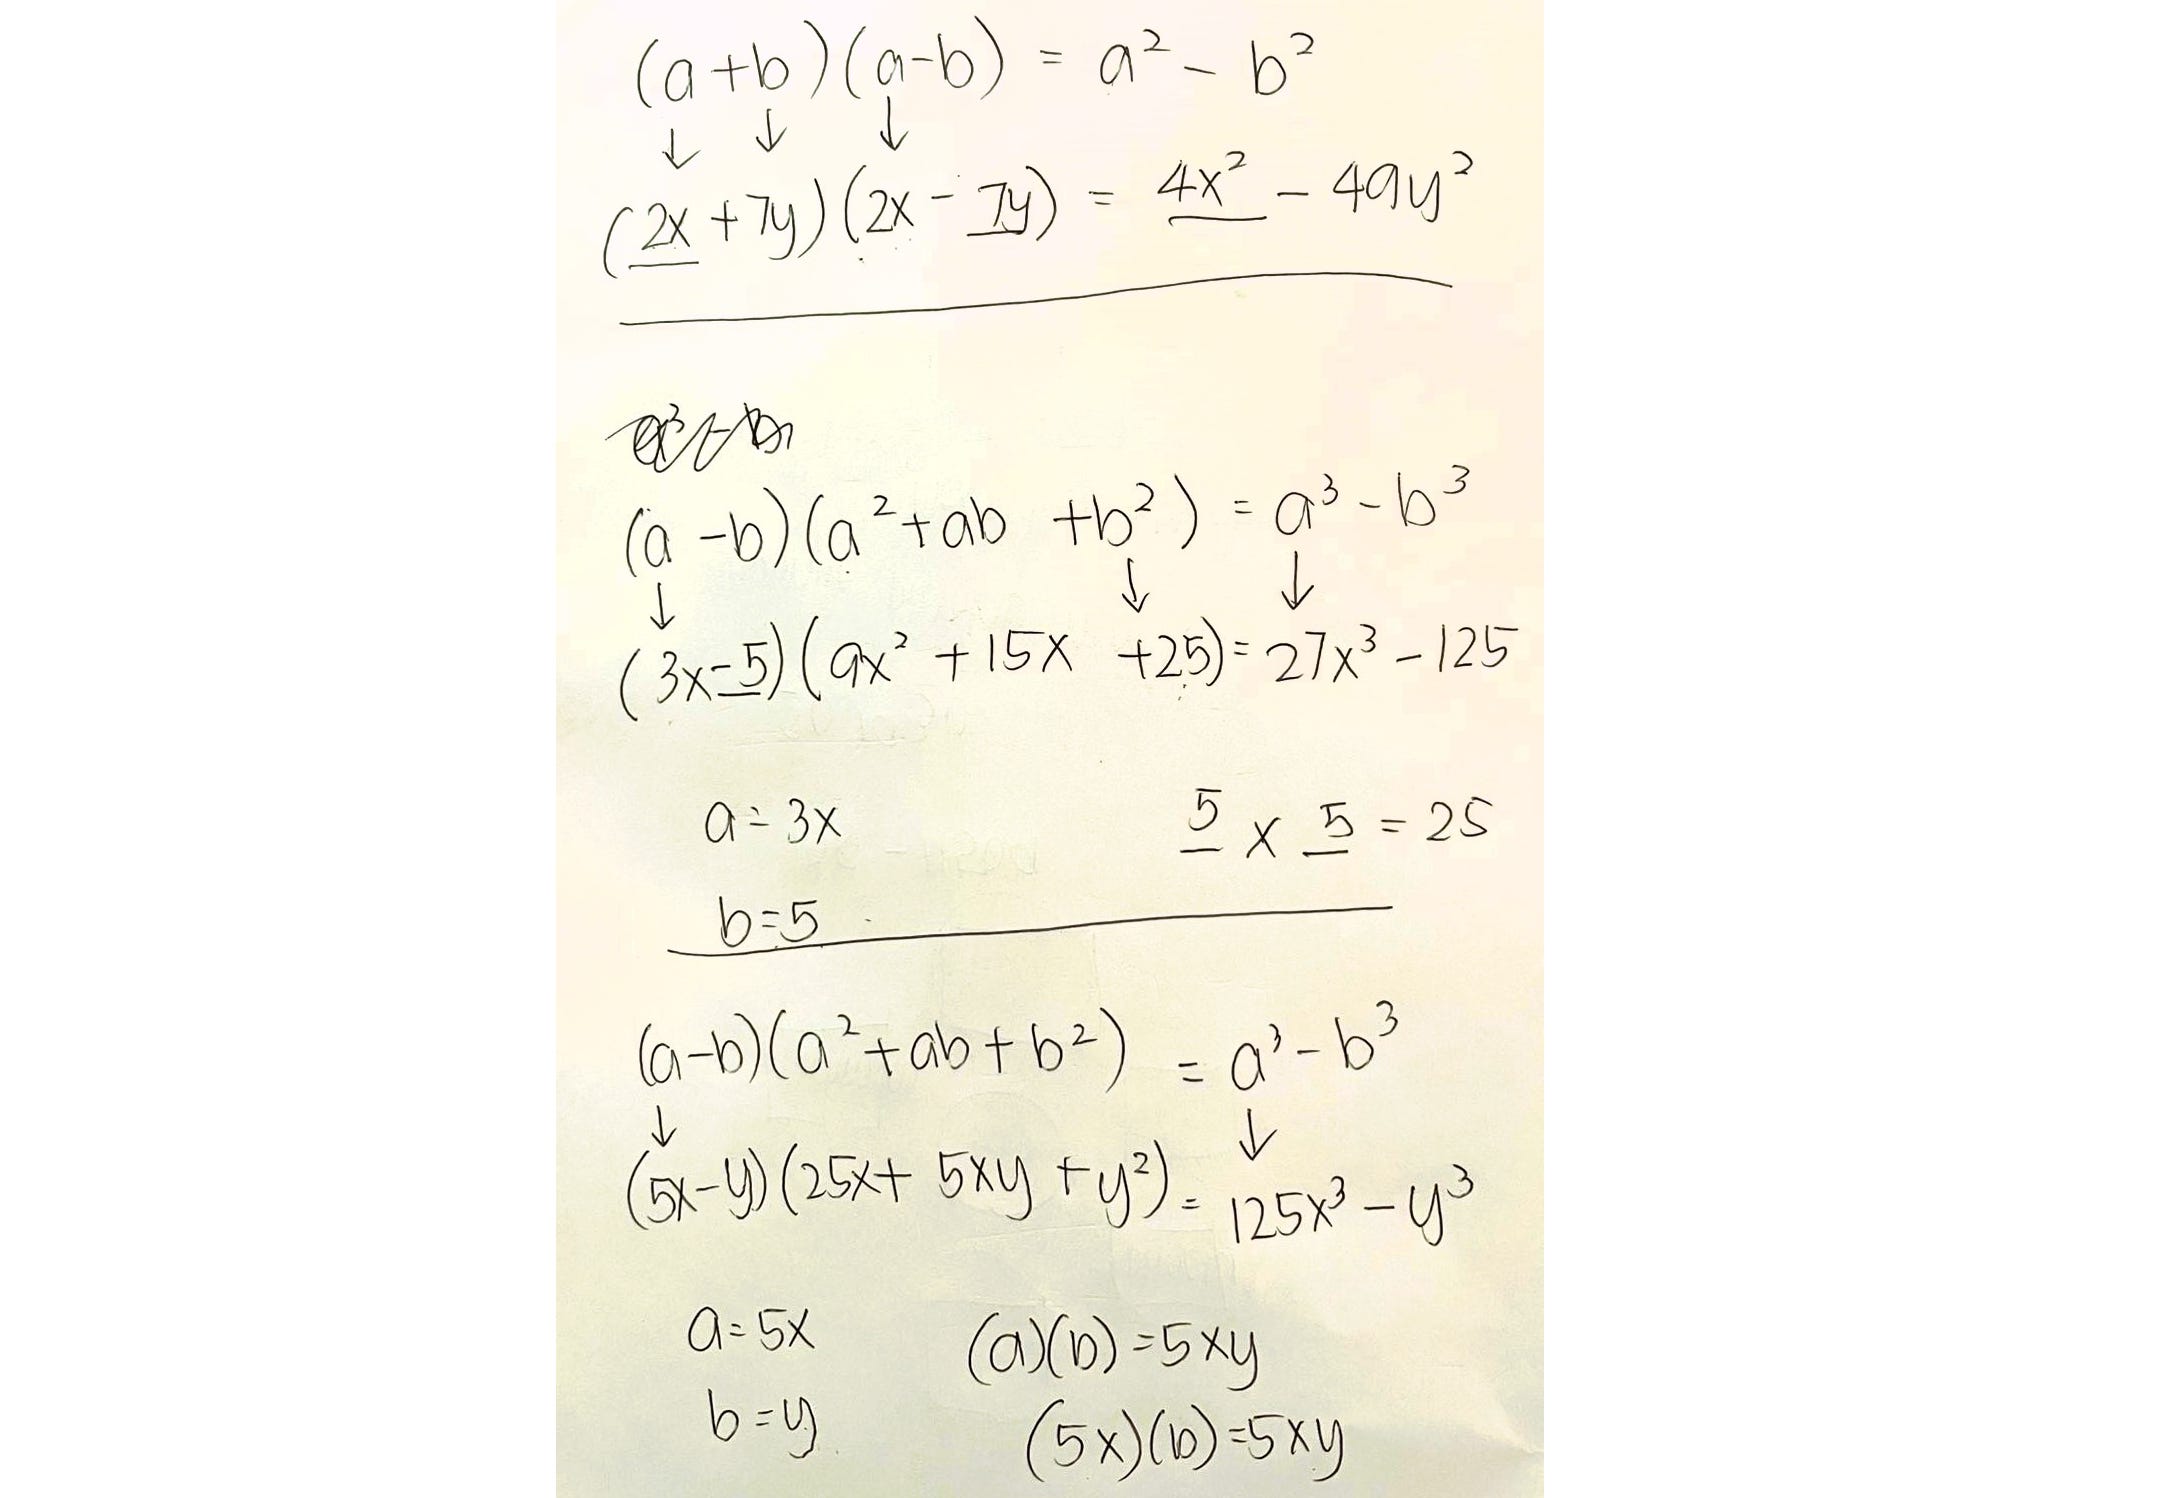 (a+b)(a-b) = a² - b²
↓ ↓ ↓
(2x + 7y)(2x - 7y) = 4x² - 49y²
(a - b)(a² + ab + b²) = a³ - b³
↓ ↓ ↓
(3x-5)(9x² + 15x + 25) = 27x³ - 125
a = 3x 5 x 5 = 25
b = 5
(a-b)(a² + ab + b²) = a³ - b³
↓ ↓
(5x-y)(25x + 5xy + y²) = 125x³ - y³
a = 5x (a)(b) = 5xy
b = y (5x)(b) = 5xy